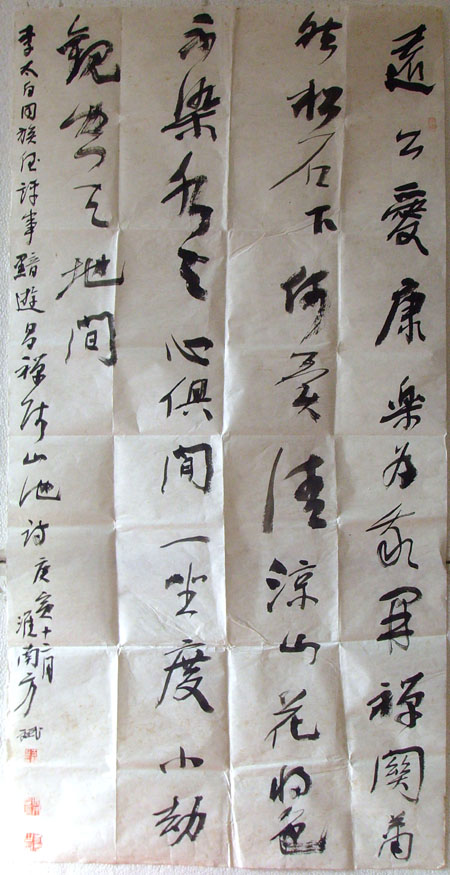 遠公愛康楽为我開禪關蕭
然松石下何異清涼山花将色
不染水与心俱閒一坐度小劫
觀空天地間
李太白同族侄評事黯遊昌禅师山池詩庚寅十二月淮南方斌